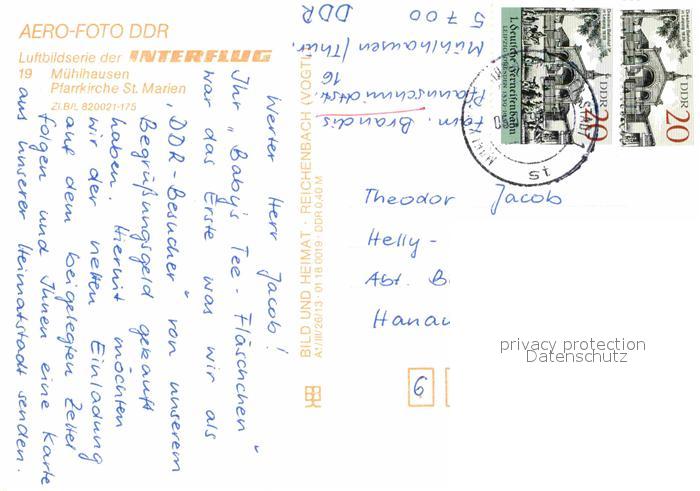 AERO-FOTO DDR
Luftbildserie der INTERFLUG
19 Mühlhausen
Pfarrkirche St. Marien
ZI.B/L 820021-175
Werter Herr Jacob!
Ihr „Baby's Tee-Fläschchen"
war das Erste was wir als
„DDR-Besucher" von unserem
Begrüßungsgeld gekauft
haben. Hiermit möchten
wir der netten Einladung
auf dem beigelegten Zettel
folgen und Ihnen eine Karte
aus unserer Heimatstadt senden.
BILD UND HEIMAT · REICHENBACH (VOGTL)
A1/III/26/13 · 01 18 0019 · DDR 0,40 M
Fam. Brandis
Pfannschmidtstr.
16
Mühlhausen/Thür.
5700
DDR
1. deutsche Ferneisenbahn
LEIPZIG-DRESDEN
DDR
20
DDR
20
Theodor Jacob
Helly-
Abt. B
Hanau
6
privacy protection
Datenschutz